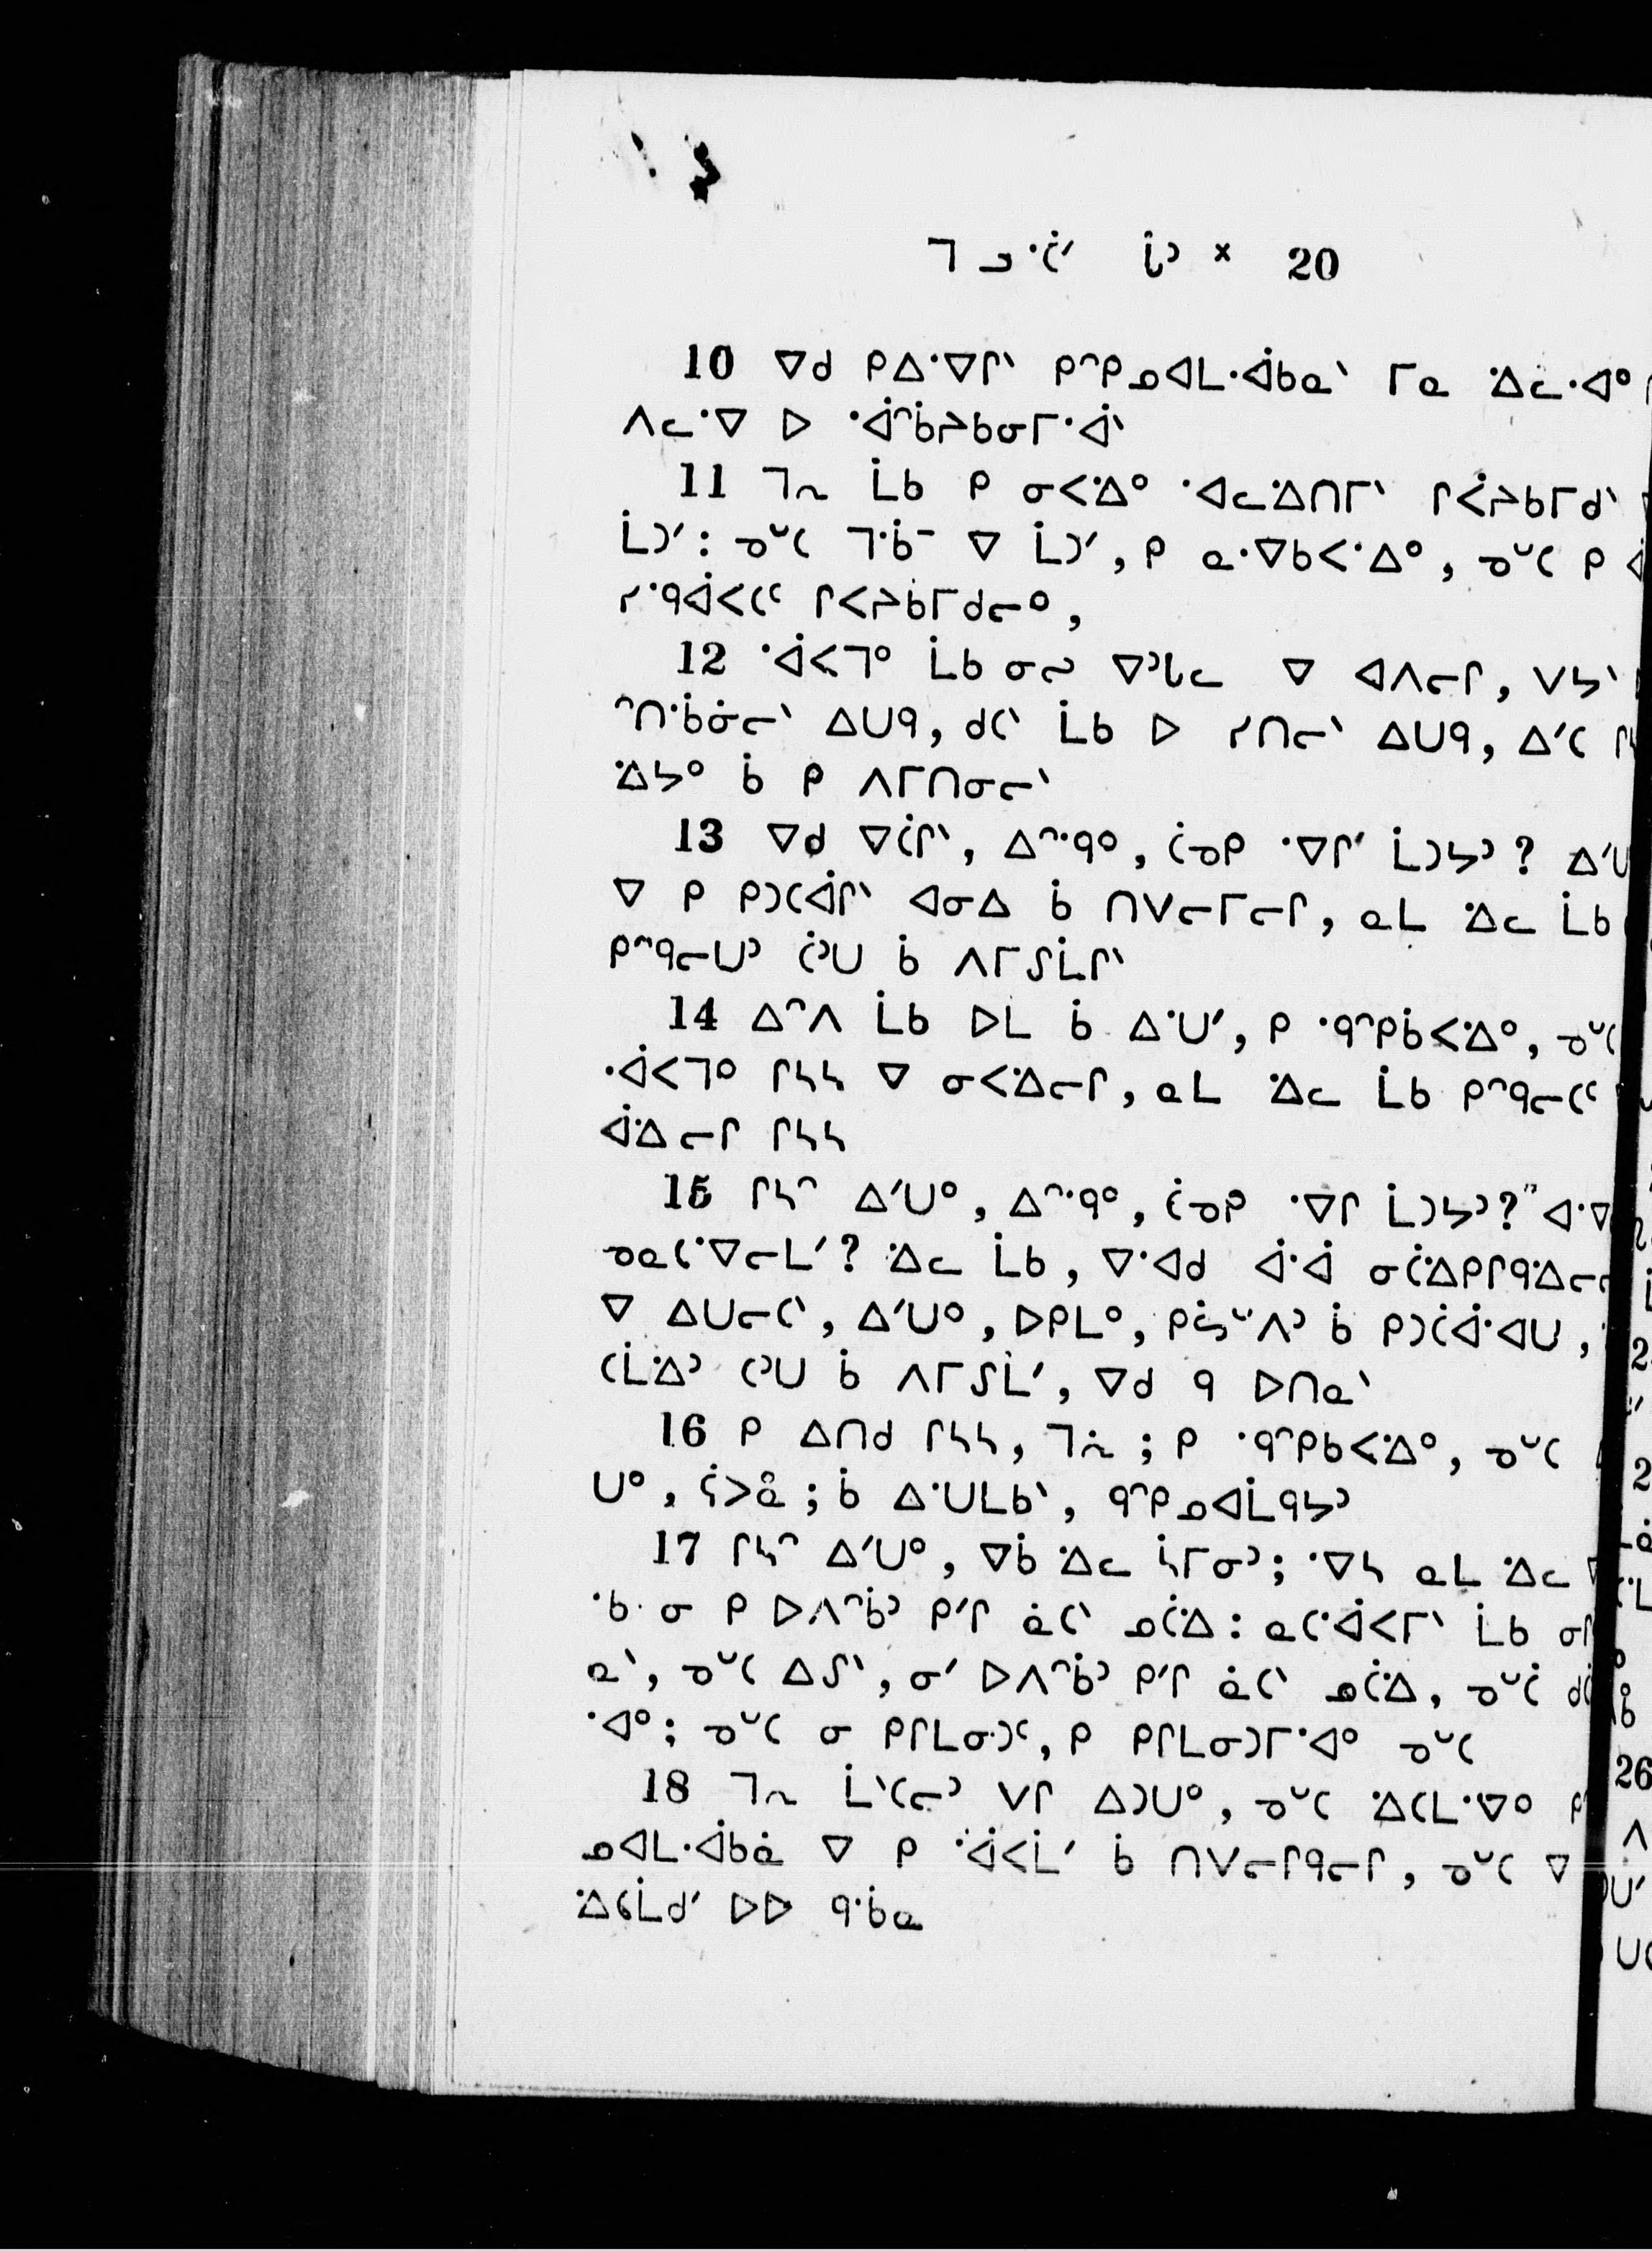 ᒣ ᓗᐧᑖᐟ ᒑᐣ × 20
10 ᐁᑯ ᑭᐃᐧᐁᒋᐠ ᑭᐢᑭᓄᐊᒪᐧᐋᑲᓇᐠ ᒥᓇ ᐄᐧᓚᐧᐊᐤ
ᐱᓚᐧᐁ ᐅ ᐧᐋᐢᑳᐦᐃᑲᓂᒥᐧᐋᐠ
11 ᒣᕆ ᒫᑲ ᑭ ᓂᐸᐏᐤ ᐧᐊᓚᐏᑎᒥᐠ ᒋᐹᐦᐃᑲᒥᑯᐠ
ᒫᑐᐟ: ᓀᐢᑕ ᒣᐧᑳᐨ ᐁ ᒫᑐᐟ, ᑭ ᓇᐧᐁᑲᐸᐧᐃᐤ, ᓀᐢᑕ ᑭ
ᓯᐧᑫᐋᐸᑕᑦ ᒋᐸᐦᐃᑳᒥᑯᓕᐤ,
12 ᐧᐋᐸᒣᐤ ᒫᑲ ᓂᔓ ᐁᐣᒐᓚ ᐁ ᐊᐱᓕᒋ, ᐯᔭᐠ
ᐢᑎᐧᑳᓃᓕᐠ ᐃᑌᑫ, ᑯᑕᐠ ᒫᑲ ᐅ ᓯᑎᓕᐠ ᐃᑌᑫ, ᐃᐟᑕ
ᐏᔭᐤ ᑳ ᑭ ᐱᒥᑎᓂᓕᐠ
13 ᐁᑯ ᐁᑖᒋᐠ, ᐃᐢᐧᑫᐤ, ᑖᓀᑭ ᐧᐁᒋᐟ ᒫᑐᔭᐣ?
ᐁ ᑭ ᑭᑐᑕᐋᒋᐠ ᐊᓂᐃ ᑳ ᑎᐯᓕᒥᓕᒋ, ᓇᒪ ᐏᓚ ᒫᑲ
ᑭᐢᑫᓕᑌᐣ ᑖᐣᑌ ᑳ ᐱᒥᔑᒫᒋᐠ
14 ᐃᐢᐱ ᒫᑲ ᐅᒪ ᑳ ᐃᐧᑌᐟ, ᑭ ᐧᑫᐢᑭᑳᐸᐏᐤ,
ᐧᐋᐸᒣᐤ ᒋᓴᓴ ᐁ ᓂᐸᐏᓕᒋ, ᓇᒪ ᐏᓚ ᒫᑲ ᑭᐢᑫᓕᑕᑦ
ᐋᐏᓕᒋ ᒋᓴᓴ
15 ᒋᓴᐢ ᐃᐟᑌᐤ, ᐃᐢᐧᑫᐤ, ᑖᓀᑭ ᐧᐁᒋ ᒫᑐᔭᐣ?
ᓀᓇᑕᐧᐁᓕᒪᐟ? ᐏᓚ ᒫᑲ, ᐁᐧᐊᑯ ᐋᐧᐋ
ᐁ ᐃᑌᓕᑕᐠ, ᐃᐟᑌᐤ, ᐅᑭᒪᐤ, ᑭᔮᐢᐱᐣ ᑳ ᑭᑐᑖᐋᐧᐊᑌ,
ᑕᒫᐏᐣ ᑕᐣᑌ ᑳ ᐱᒥᔑᒫᐟ, ᐁᑯ ᑫ ᐅᑎᓇᐠ
16 ᑭ ᐃᑎᑯ ᒋᓴᓴ, ᒣᕇ; ᑭ ᐧᑫᐢᑭᑲᐸᐏᐤ, ᓀᐢᑕ
ᑌᐤ, ᕌᐳᓈ; ᑳ ᐃᐧᑌᒪᑲᐠ, ᑫᐢᑭᓄᐊᒫᑫᔭᐣ
17 ᒋᓴᐢ ᐃᐟᑌᐤ, ᐁᑳ ᐏᓚ ᓵᒥᓂᐣ; ᐧᐁᓴ ᓇᒪ ᐏᓚ
ᐧᑲ ᓂ ᑭ ᐅᐱᐢᑳᐣ ᑭᐟᒋ ᓈᑕᐠ ᓄᑖᐏ: ᓇᑕᐧᐋᐸᒥᐠ ᒫᑲ
ᓇᐠ, ᓀᐢᑕ ᐃᔑᐠ, ᓂᐟ ᐅᐱᐢᑳᐣ ᑭᐟᒋ ᓈᑕᐠ ᓄᑖᐏ, ᓀᐢᑖ
ᐧᐊᐤ; ᓀᐢᑕ ᓂ ᑭᒋᒪᓂᑐᑦ, ᑭ ᑭᒋᒪᓂᑐᒥᐧᐊᐤ ᓀᐢᑕ
18 ᒣᕆ ᒫᐠᑕᓕᐣ ᐯᒋ ᐃᑐᑌᐤ, ᓀᐢᑕ ᐏᑕᒪᐧᐁᐤ
ᓄᐊᒪᐧᐋᑲᓈ ᐁ ᑭ ᐧᐋᐸᒫᐟ ᑳ ᑎᐯᓕᒋᑫᓕᒋ, ᓀᐢᑕ ᐁ
ᐏᑕᒫᑯᐟ ᐅᐅ ᑫᐧᑳᓇ